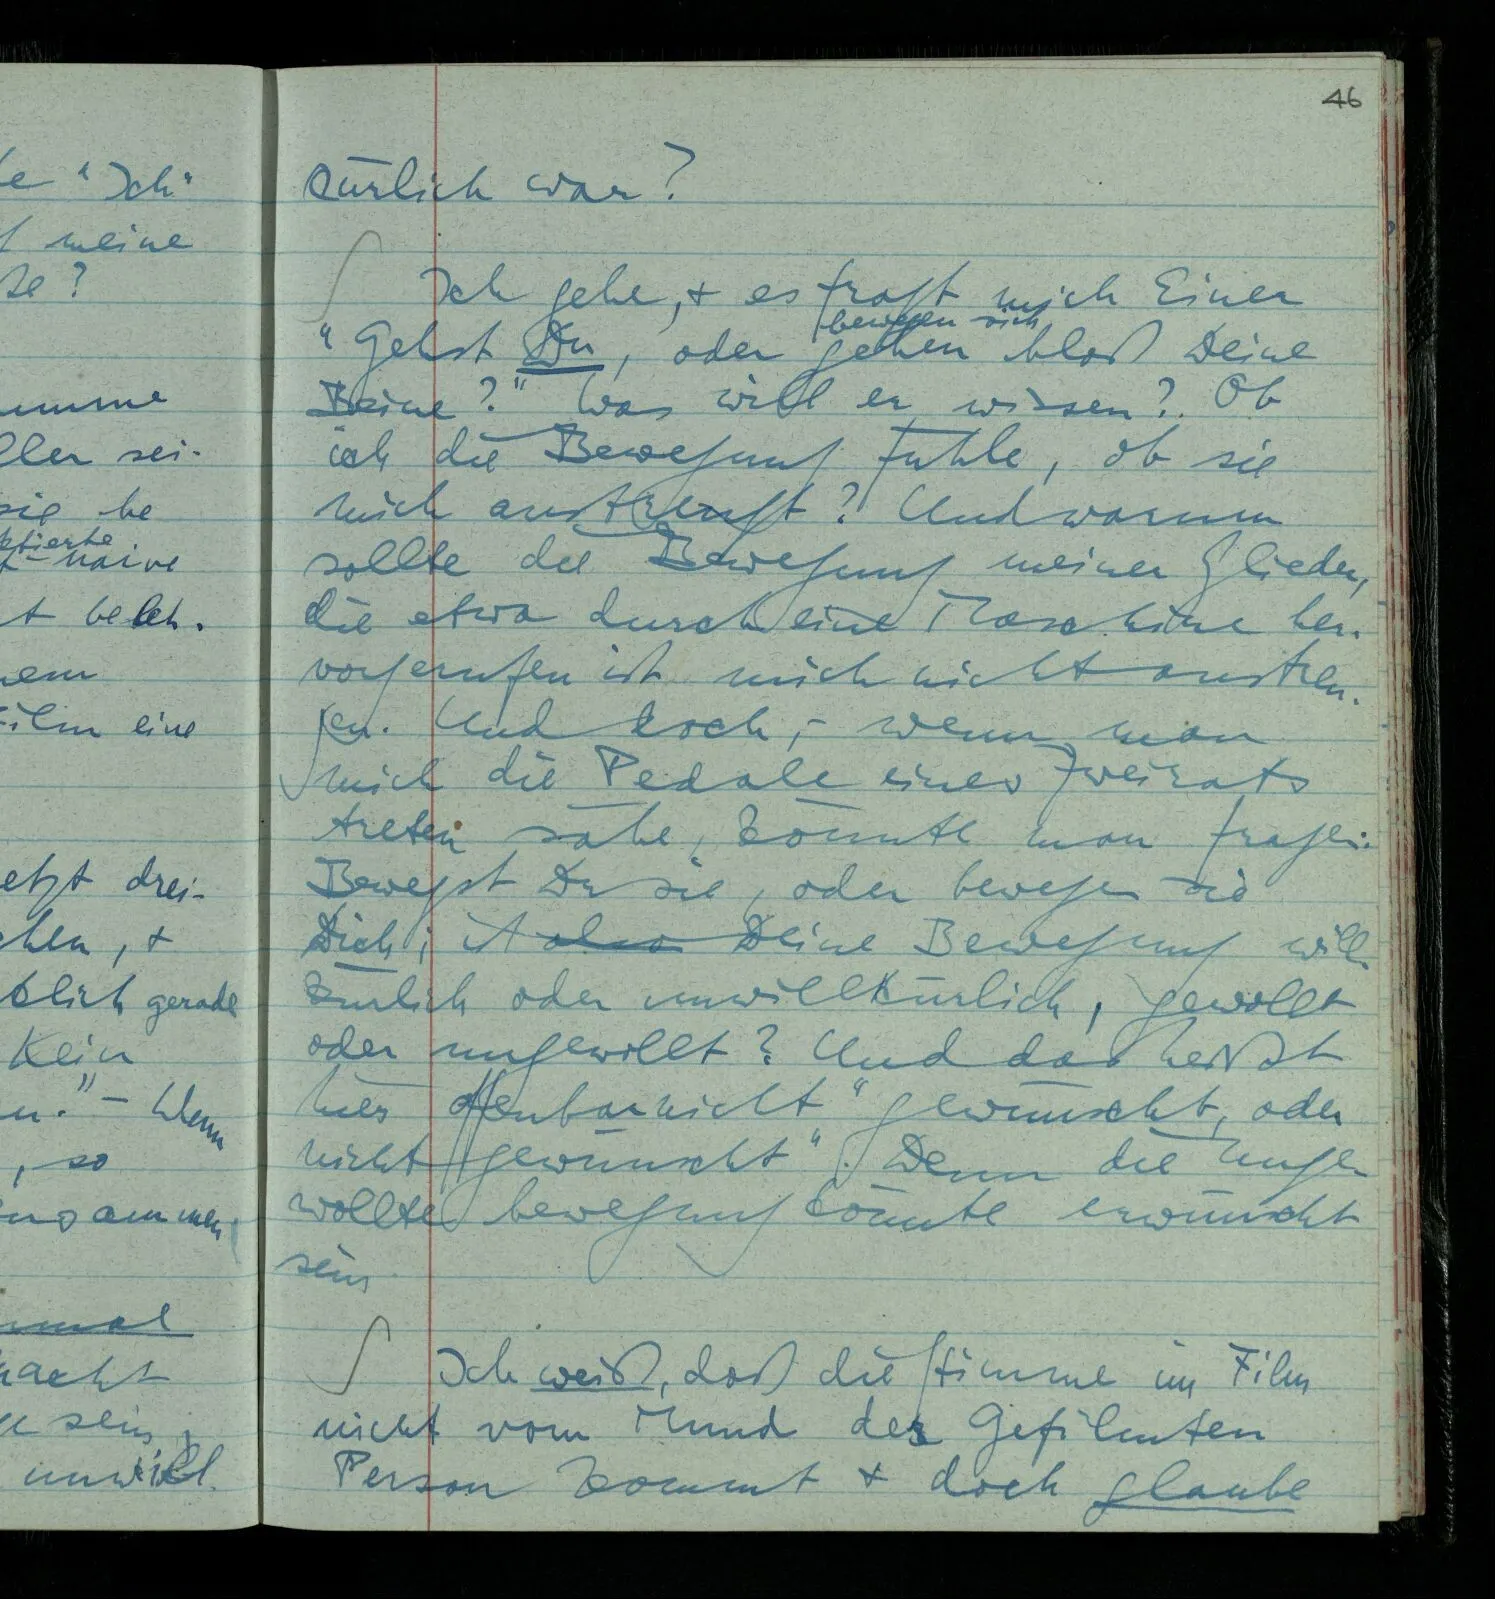 le "Ich"
meine
te?
umme
ller sei-
sie be
naive
t
nem
Film eine
etzt drei-
chen, +
blich gerade
Kein
n." – Wenn
, so
zusammen,
nmal
macht
sein,
unwill
46
kürlich war?
Ich gehe, + es fragt mich Einer
bewegen sich
"Gehst Du, oder gehen bloß Deine
Beine?" Was will er wissen? Ob
ich die Bewegung fühle, ob sie
mich anstrengt? Und warum
sollte die Bewegung meiner Glieder,
die etwa durch eine Maschine her-
vorgerufen ist mich nicht anstren-
gen. Und doch, – wenn man
mich die Pedale eines Zweirats
treten sähe, könnte man fragen:
Bewegst Du sie, oder bewegen sie
Dich; ist also Deine Bewegung will-
kürlich oder unwillkürlich, gewollt
oder ungewollt? Und das heißt
hier offenbar nicht "gewünscht, oder
nicht gewünscht". Denn die unge-
wollte bewegung könnte erwünscht
sein
Ich weiß, daß die Stimme im Film
nicht vom Mund der Gefilmten
Person kommt + doch glaube